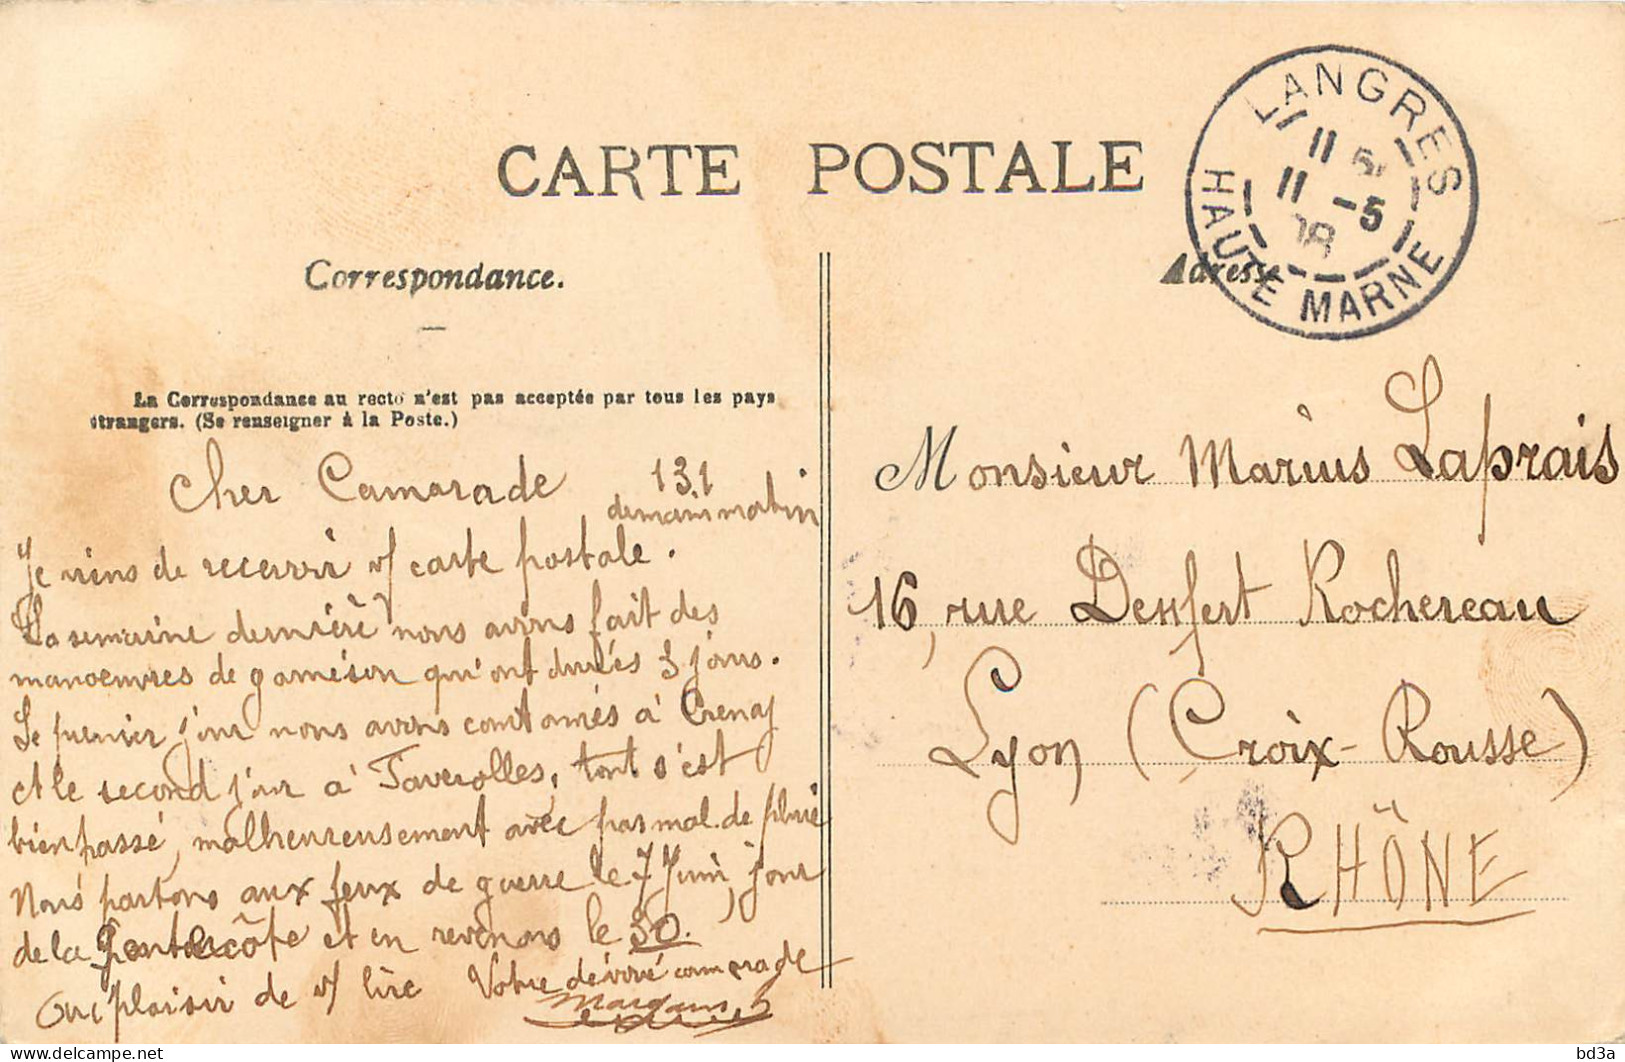 CARTE POSTALE
LANGRES
HAUTE MARNE
11
11 -5
08
Correspondance.
Adresse
La Correspondance au recto n'est pas acceptée par tous les pays
étrangers. (Se renseigner à la Poste.)
Cher Camarade
131
demain matin
Je viens de recevoir v/ carte postale.
La semaine dernière nous avons fait des
manoeuvres de garnison qui ont durées 3 jours.
Le premier jour nous avons à Crenay
et le second jour à Faverolles, tout s'est
bien passé, malheureusement avec pas mal de pluie
Nous partons aux feux de guerre le 7 Juin, jour
de la Pentecôte et en revenons le 30.
Au plaisir de v/ lire Votre dévoué camarade
Monsieur Marius Laprais
16, rue Denfert Rochereau
Lyon (Croix-Rousse)
RHÔNE
bd3a